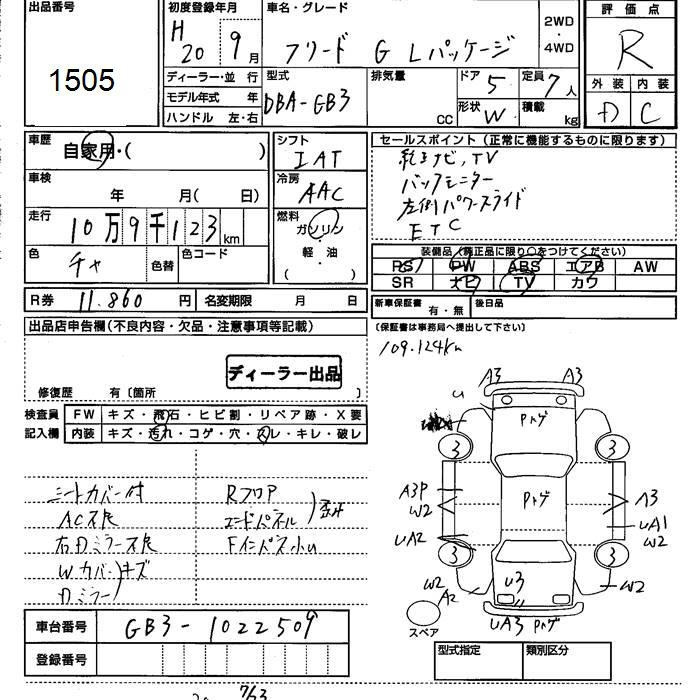 出品番号
1505
初度登録年月
H 20 9月
車名・グレード
フリード G Lパッケージ
2WD
・
4WD
評価点
R
ディーラー・並 行
モデル年式 年
ハンドル 左・右
型式
DBA-GB3
排気量
CC
ドア 5
定員 7人
形状 W
積載 kg
外装 内装
D C
車歴
自家用・( )
車検
年 月( 日)
走行
10万9千123km
色
チャ
色替
色コード
シフト
IAT
冷房
AAC
燃料
ガソリン
・
軽 油
( )
セールスポイント (正常に機能するものに限ります)
純正ナビ,TV
バックモニター
左側パワースライド
ETC
装備品(純正品に限り○をつけてください)
PS PW ABS エアB AW
SR ナビ TV カワ
R券 11.860 円
名変期限 月 日
新車保証書 有・無
後日品
(保証書は事務局へ提出して下さい)
109.124km
出品店申告欄(不良内容・欠品・注意事項等記載)
ディーラー出品
修復歴 有〔箇所 〕
検査員 FW キズ・飛石・ヒビ割・リペア跡・X要
記入欄 内装 キズ・汚れ・コゲ・穴・スレ・キレ・破レ
シートカバー付
AC不良
右Dミラー不良
W カバー キズ
Dミラー
Rフロア
エンドパネル
Fインパネ小U
A3 A3
U
Pトゲ
3 3
A3P
W2
Pトゲ
A3
UA1
W2
UA2
3 3
W2
A2
U3
W2
スペア
UA3 Pトゲ
車台番号 GB3-1022509
登録番号
型式指定 類別区分
763